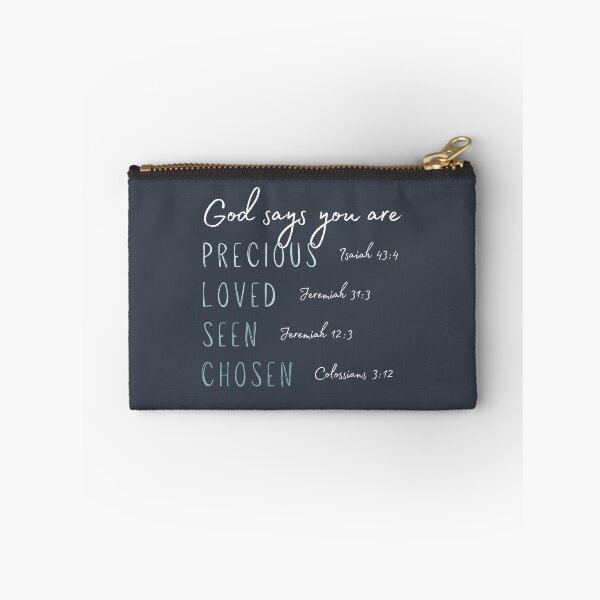 God says you are
PRECIOUS Isaiah 43:4
LOVED Jeremiah 31:3
SEEN Jeremiah 12:3
CHOSEN Colossians 3:12